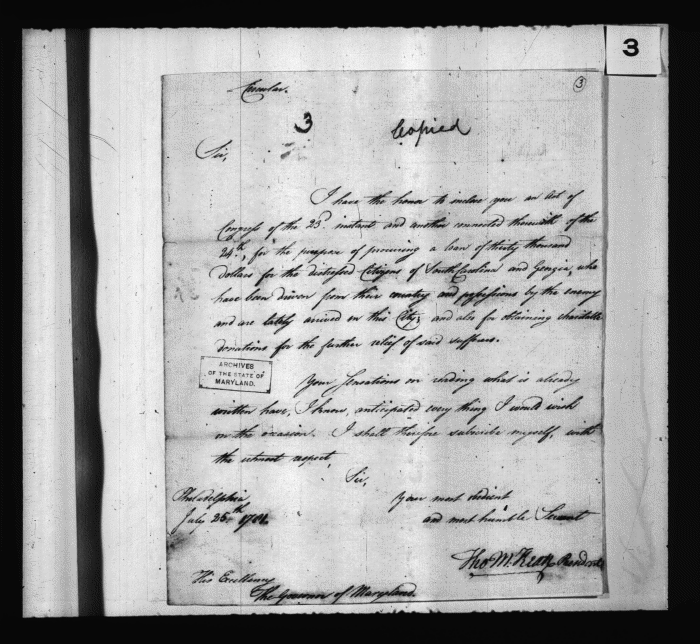 3
Circular.
3
3
Copied
Sir,
I have the honor to inclose you an Act of
Congress of the 23d instant and another connected therewith of the
24th, for the purpose of procuring a loan of thirty thousand
Dollars for the distressed Citizens of South Carolina and Georgia, who
have been driven from their country and possessions by the enemy
and are lately arrived in this City; and also for obtaining charitable
donations for the further relief of said sufferers.
ARCHIVES
OF THE STATE OF
MARYLAND.
Your sensations on reading what is already
written have, I know, anticipated every thing I would wish
on the occasion. I shall therefore subscribe myself, with
the utmost respect,
Sir,
Your most obedient
and most humble Servant
Philadelphia
July 25th 1781.
Tho M:Kean President
His Excellency
The Governor of Maryland.